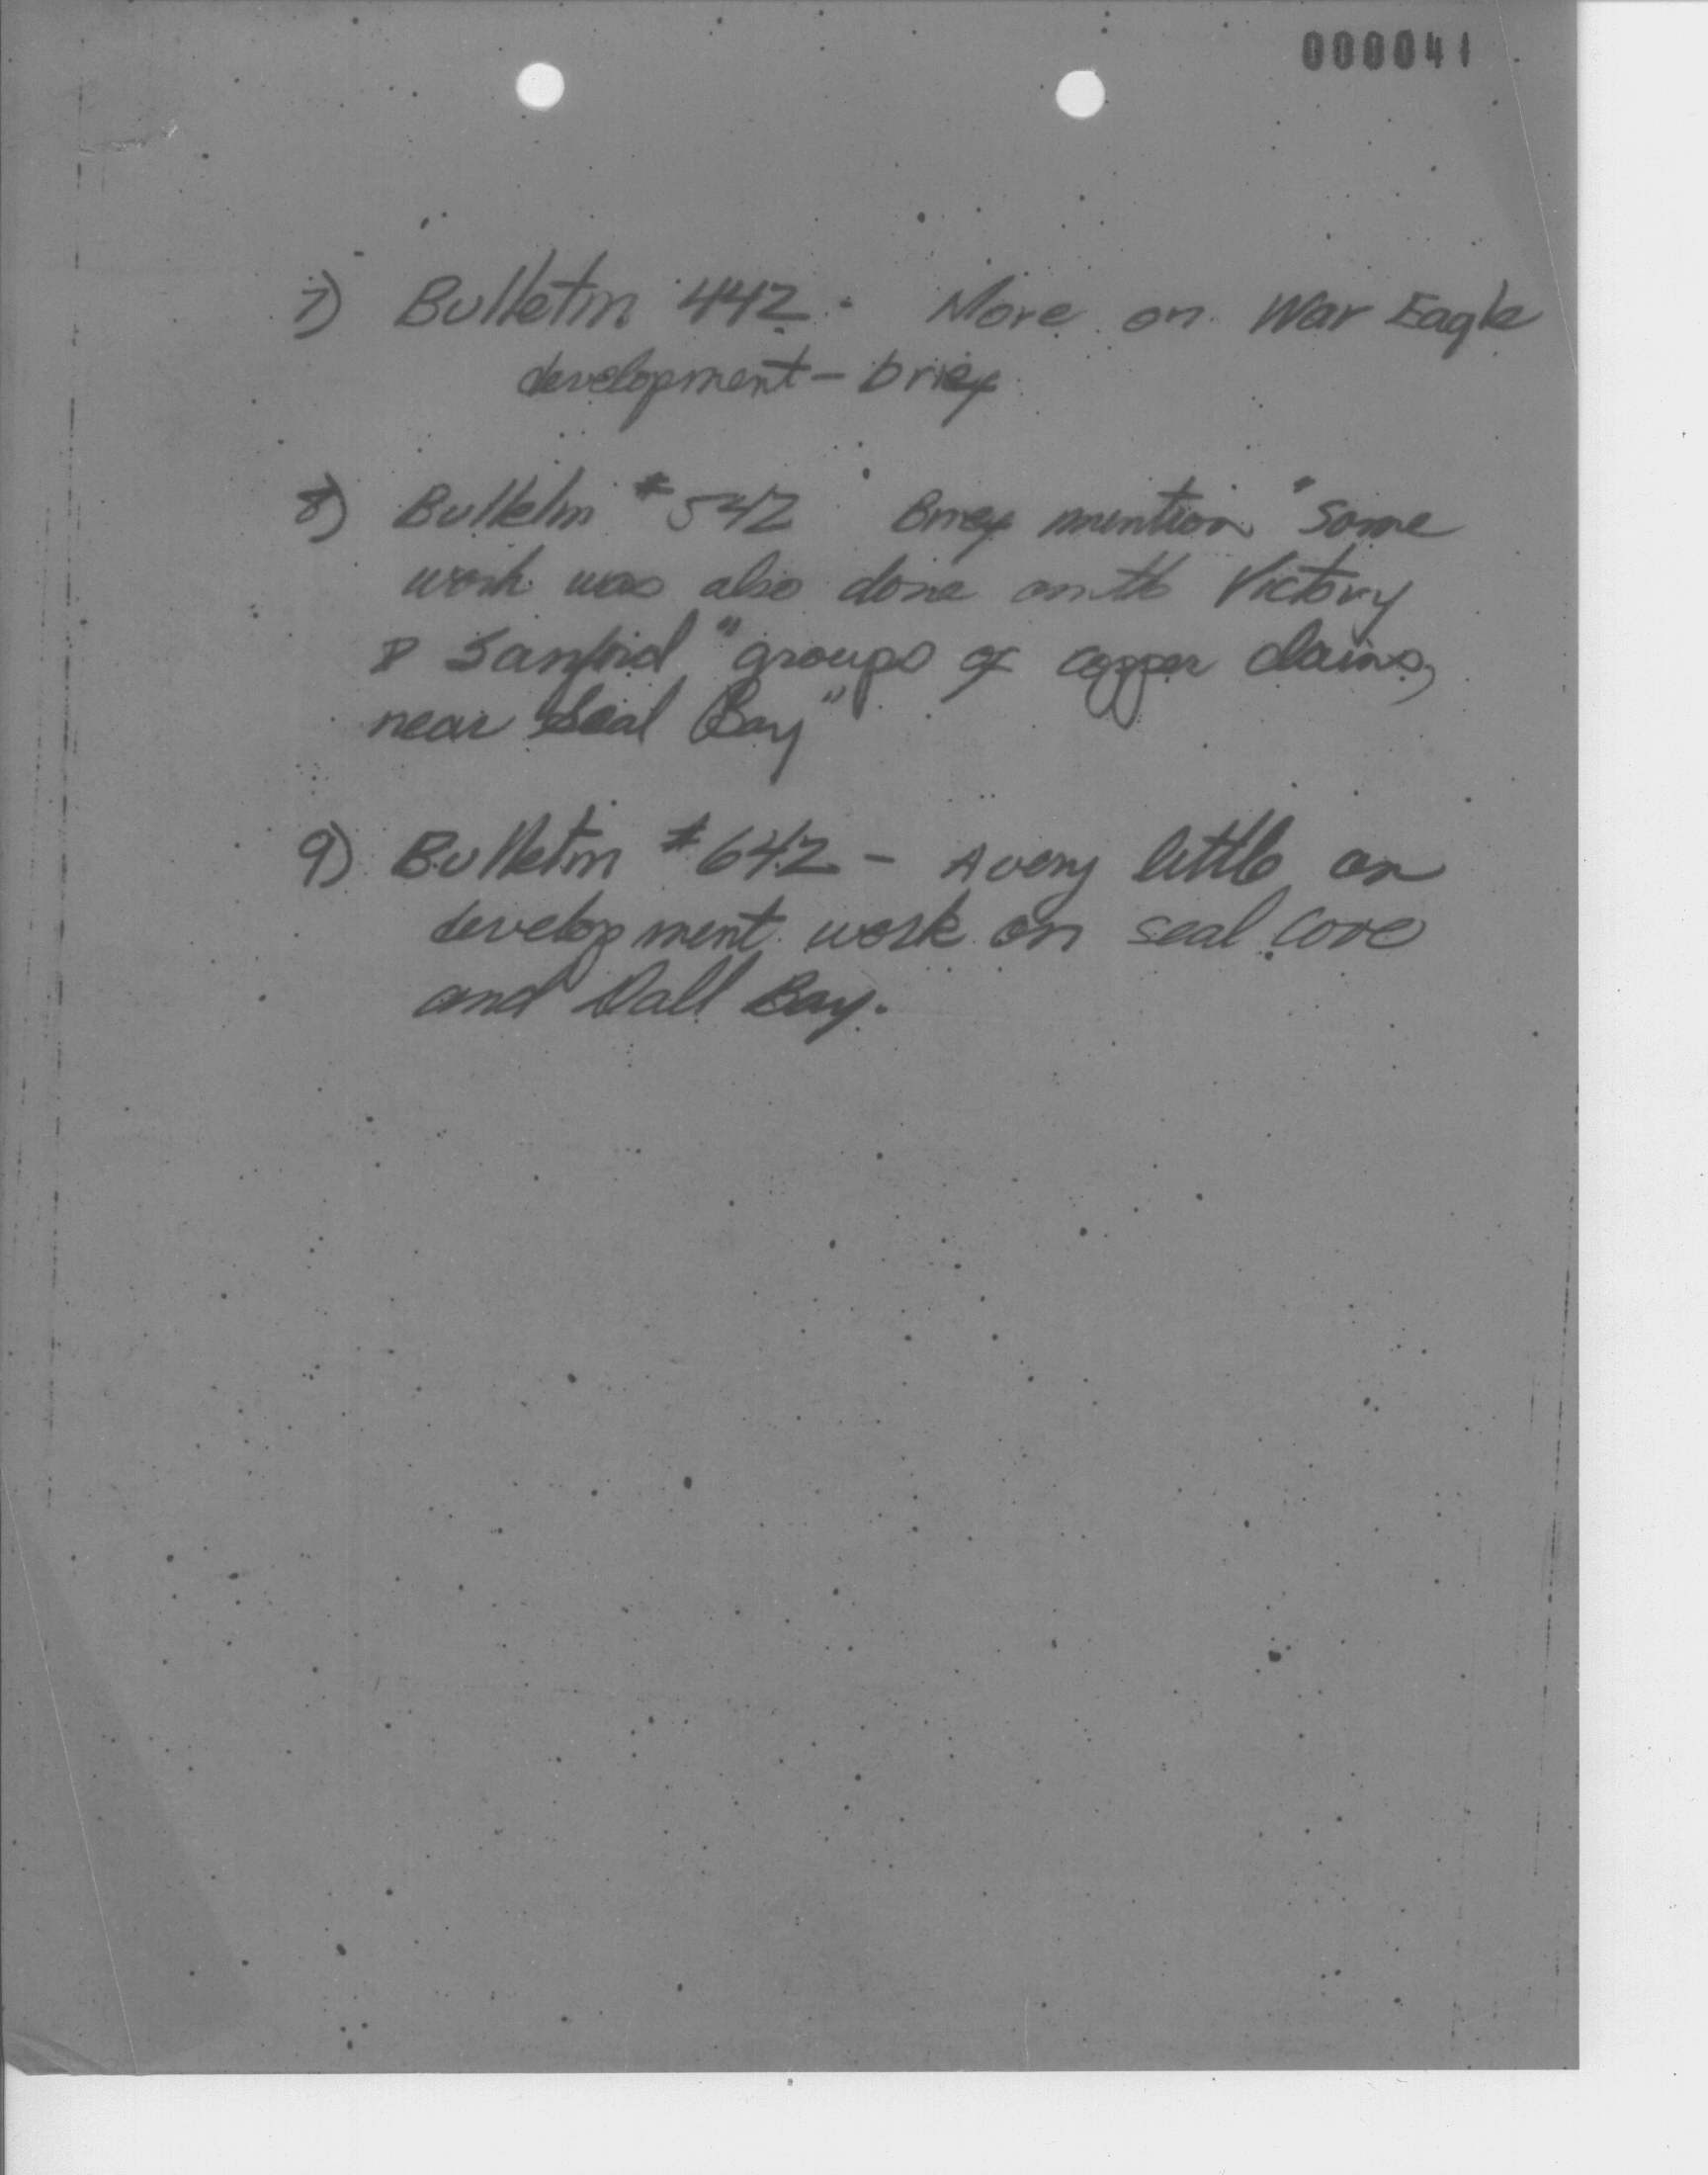 000041
7) Bulletin 442 - More on War Eagle
development - brief
8) Bulletin #542 Brief mention "Some
work was also done on the Victory
& Sanford "groups of copper claims,
near Seal Bay"
9) Bulletin #642 - A very little on
development work on Seal Cove
and Dall Bay.